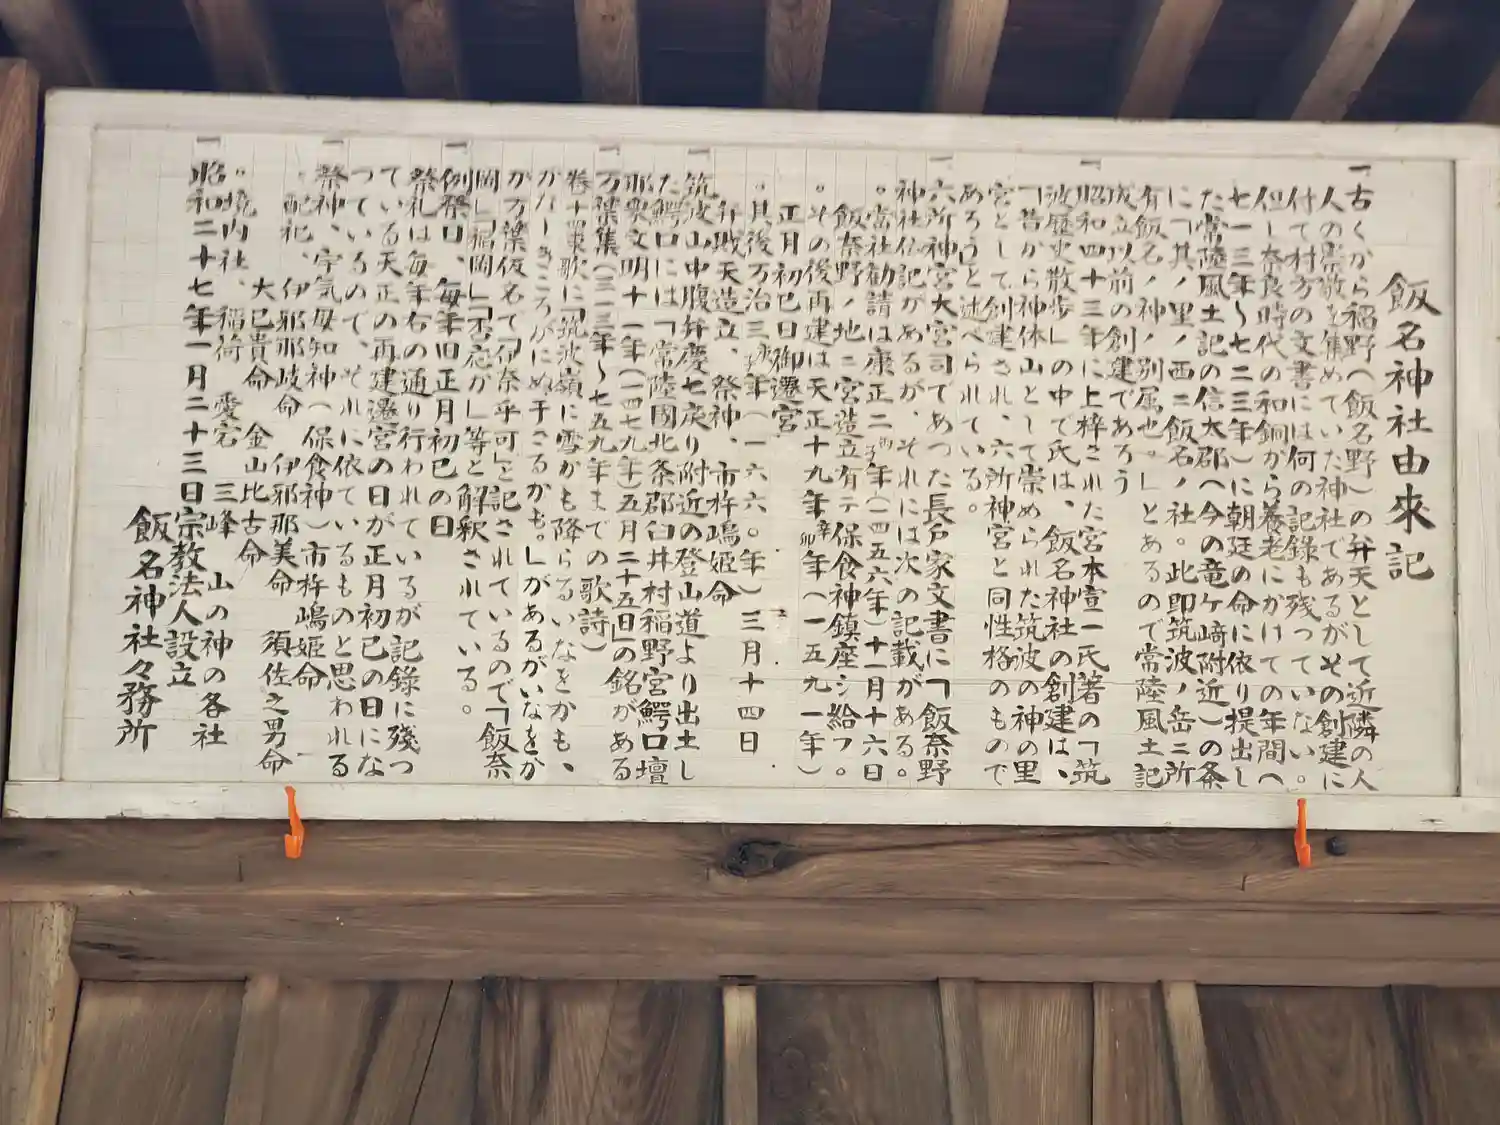 飯名神社由來記
一古くから稲野(飯名野)の弁天として近隣の人
人の崇敬を集めていた神社であるがその創建に
付て村方の文書には何の記録も残っていない。
但し奈良時代の和銅から養老にかけての年間(
七一三年~七二三年)に朝廷の命に依り提出し
た常陸風土記の信太郡(今の竜ケ﨑附近)の条
に「其ノ里ノ西ニ飯名ノ社。此即筑波ノ岳ニ所
有飯名ノ神ノ別属也。」とあるので常陸風土記
成立以前の創建であろう
一昭和四十三年に上梓された宮本宣一氏著の「筑
波歴史散歩」の中で氏は、飯名神社の創建は、
「昔から神体山として崇められた筑波の神の里
宮として創建され、六所神宮と同性格のもので
あろう」と述べられている。
一六所神宮大宮司であつた長戸家文書に「飯奈野
神社仏記があるが、それには次の記載がある。
。當社勧請は康正二丙子年(一四五六年)十一月十六日
飯奈野ノ地ニ宮造立有テ保食神鎮座シ給フ。
。その後再建は天正十九年辛卯年(一五九一年)
正月初巳日御遷宮
。其後万治三庚子年(一六六〇年)三月十四日
弁戝天造立、祭神、市杵嶋姫命
一筑波山中腹弁慶七戻り附近の登山道より出土し
た鰐口には「常陸國北条郡臼井村稲野宮鰐口壇
那衆文明十一年(一四七九年)五月二十五日」の銘がある
一万葉集(三一三年~七五九年までの歌詩)
巻十四東歌に「筑波嶺に雪かも降らるいなをかも、
かなしきころがにぬ干さるかも。」があるがいなをか
が万葉仮名で「伊奈乎可」と記されているので「飯奈
岡」「稲岡」「否応か」等と解釈されている。
一例祭日、毎年旧正月初巳の日
祭礼は毎年右の通り行われているが記録に残つ
ている天正の再建遷宮の日が正月初巳の日にな
つているので、それに依ているものと思われる
一祭神、宇気母知神(保食神)市杵嶋姫命
。配祀、伊邪那岐命 伊邪那美命 須佐之男命
大己貴命 金山比古命
。境内社、稲荷 愛宕 三峰 山の神の各社
一昭和二十七年一月二十三日宗教法人設立
飯名神社々務所